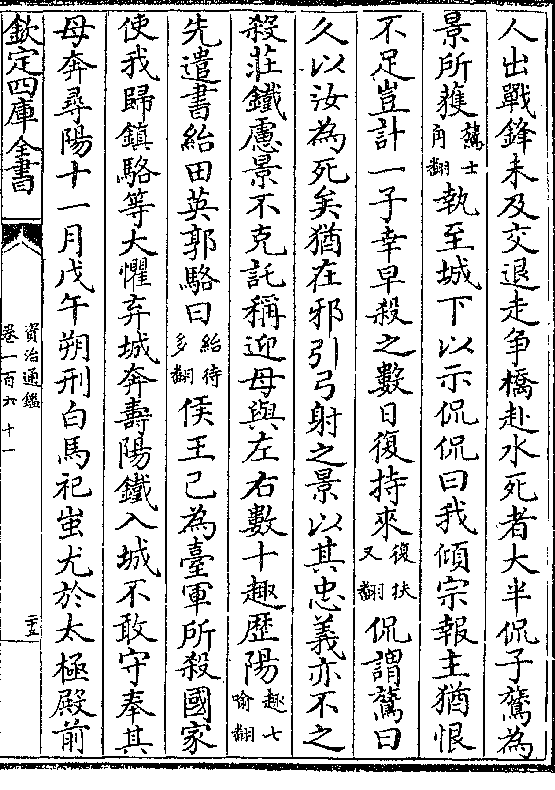 人出戰鋒未及交退走争橋赴水死者大半侃子鷟為
景所獲鷟士角翻執至城下以示侃侃曰我傾宗報主猶恨
不足豈計一子幸早殺之數日復持來復扶又翻侃謂鷟曰
久以汝為死矣猶在邪引弓射之景以其忠義亦不之
殺莊鐵慮景不克託稱迎母與左右數十趣歴陽趣七喻翻
先遣書紿田英郭駱曰紿待多翻侯王已為臺軍所殺國家
使我歸鎮駱等大懼弃城奔壽陽鐵入城不敢守奉其
母奔尋陽十一月戊午朔刑白馬祀蚩尤於太極殿前
欽定四庫全書
資治通鑑
卷一百六十一
二五